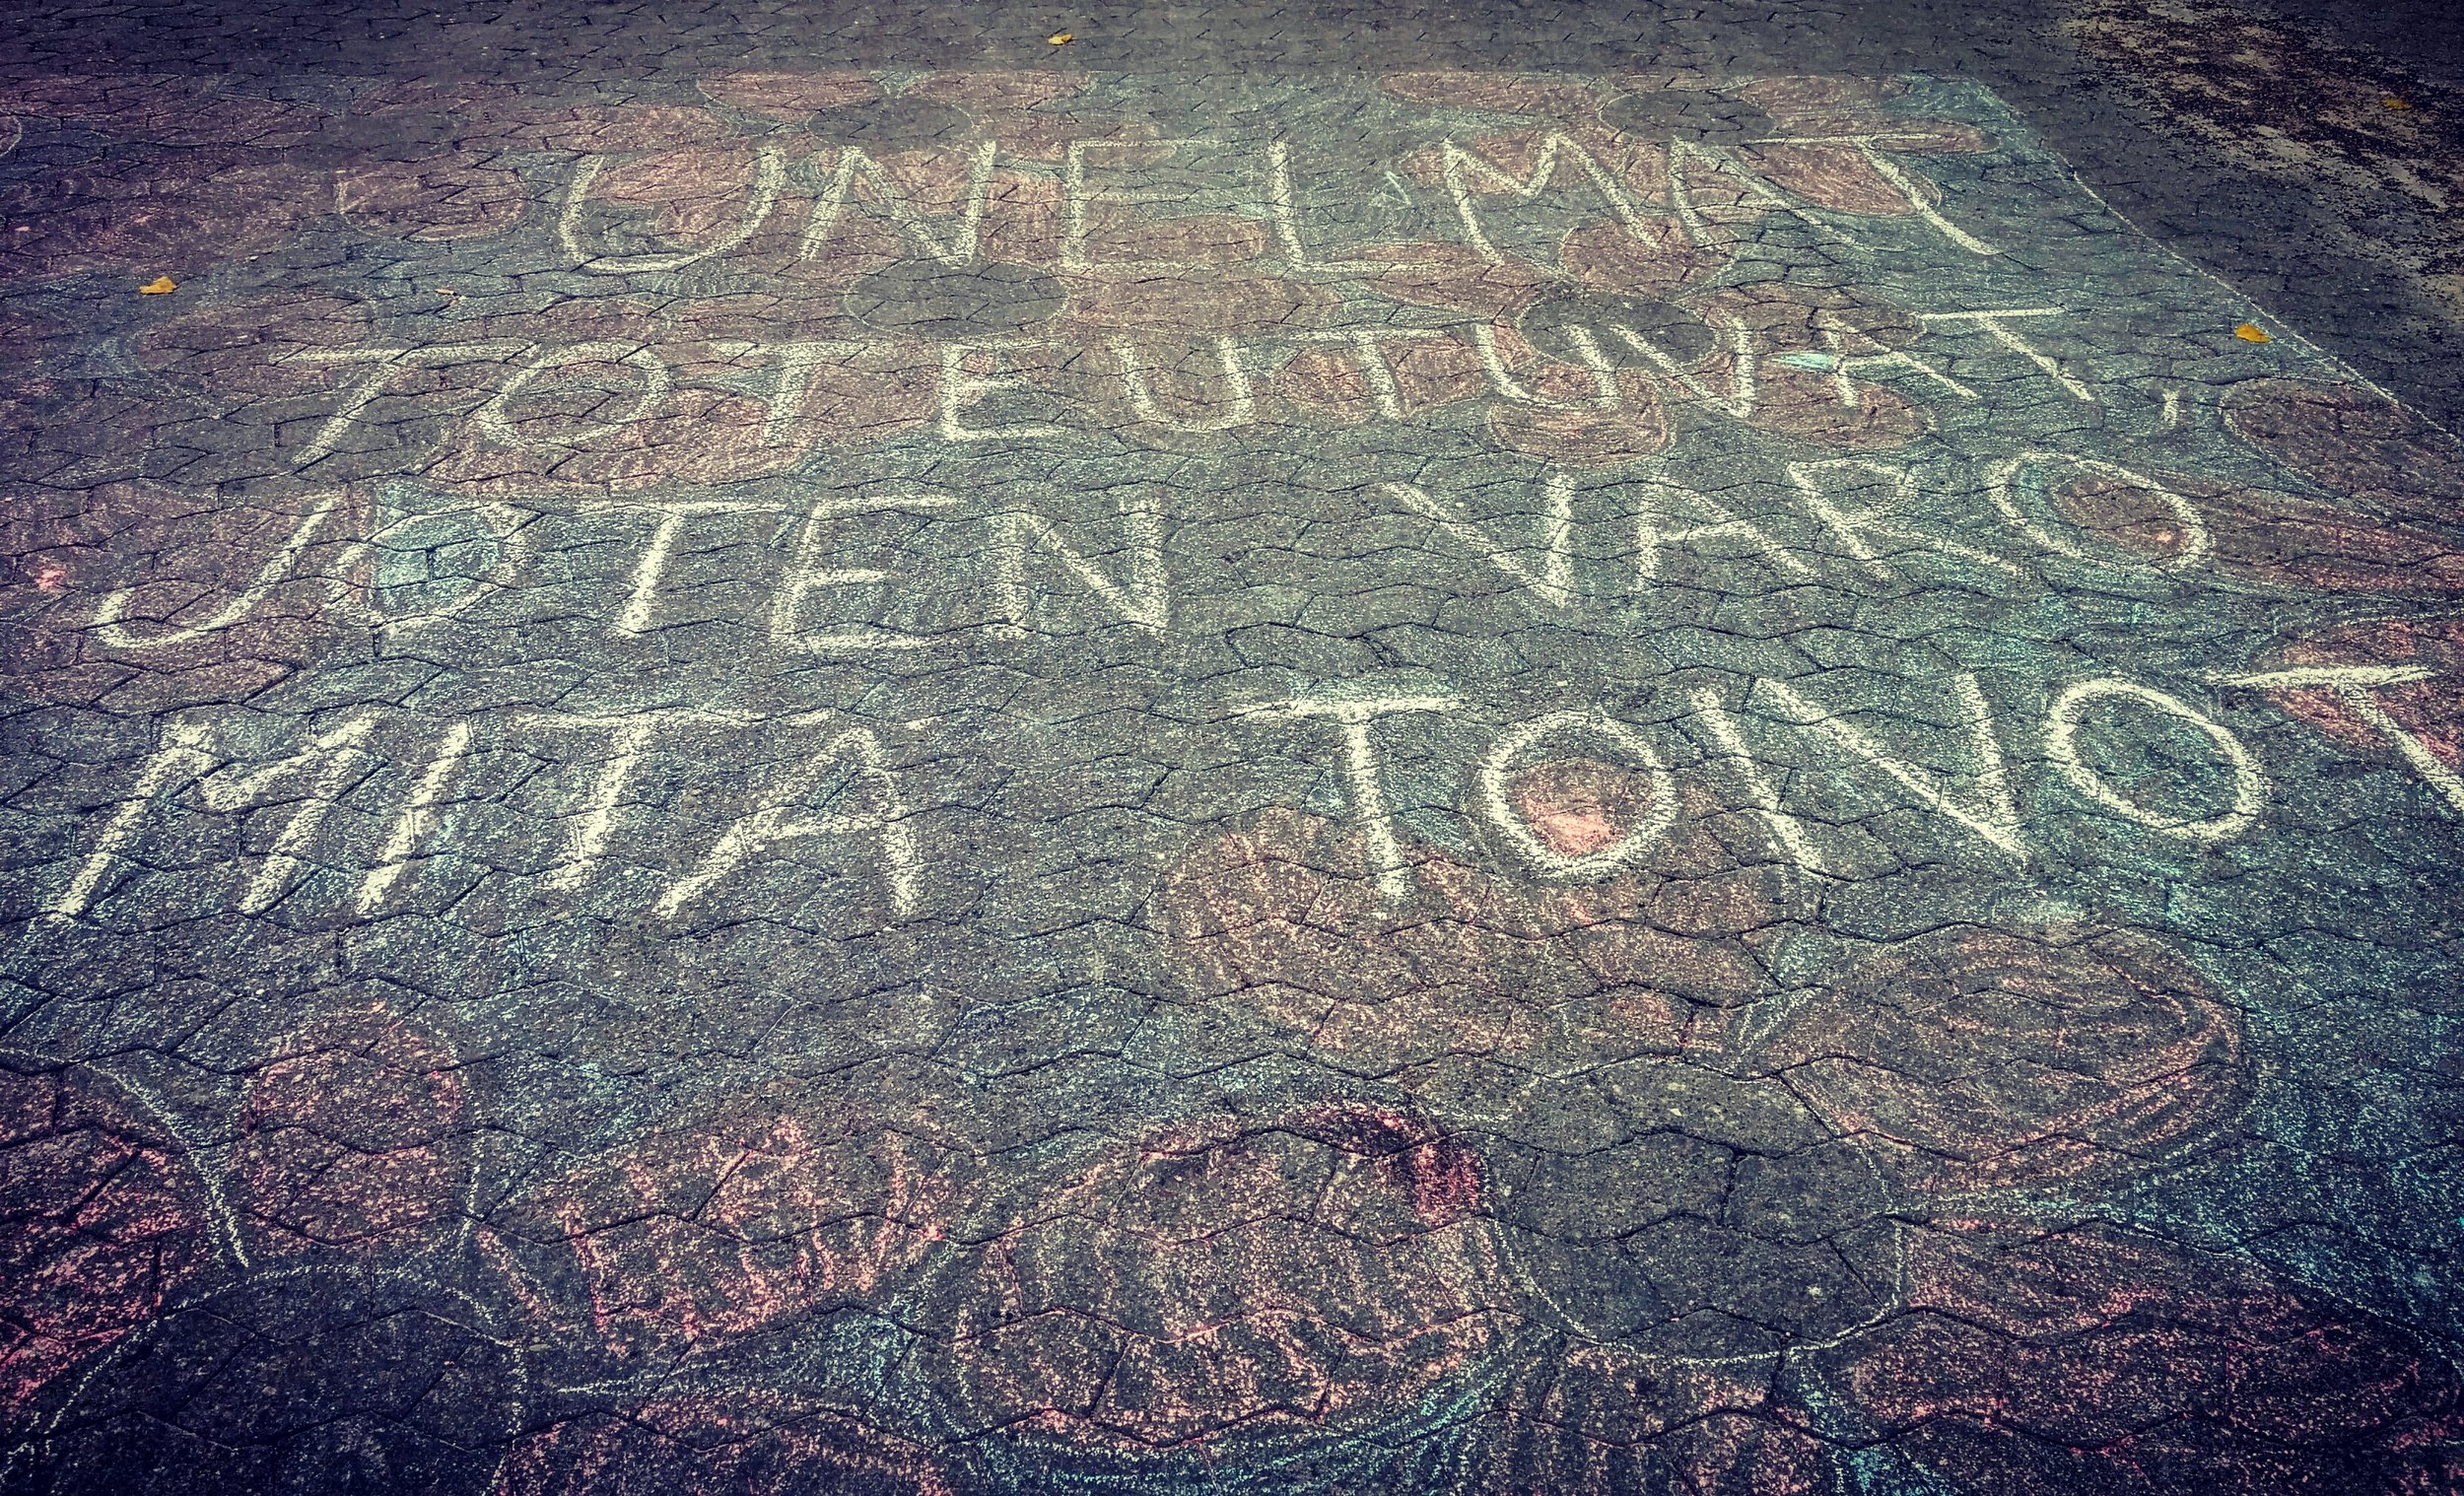 UNELMAT
TOTEUTUVAT,
JOTEN VARO
MITÄ TOIVOT